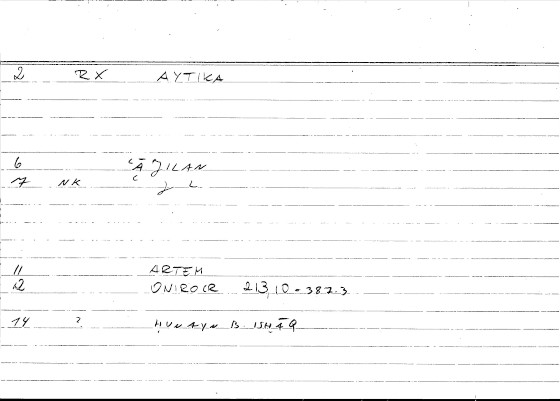 2 RX AYTIKA
6 ʿĀJILAN
7 NK ʿJL
11 ARTEM
12 ONIROCR 213,10 - 387.3
14 ? ḤUNAYN B ISḤĀQ